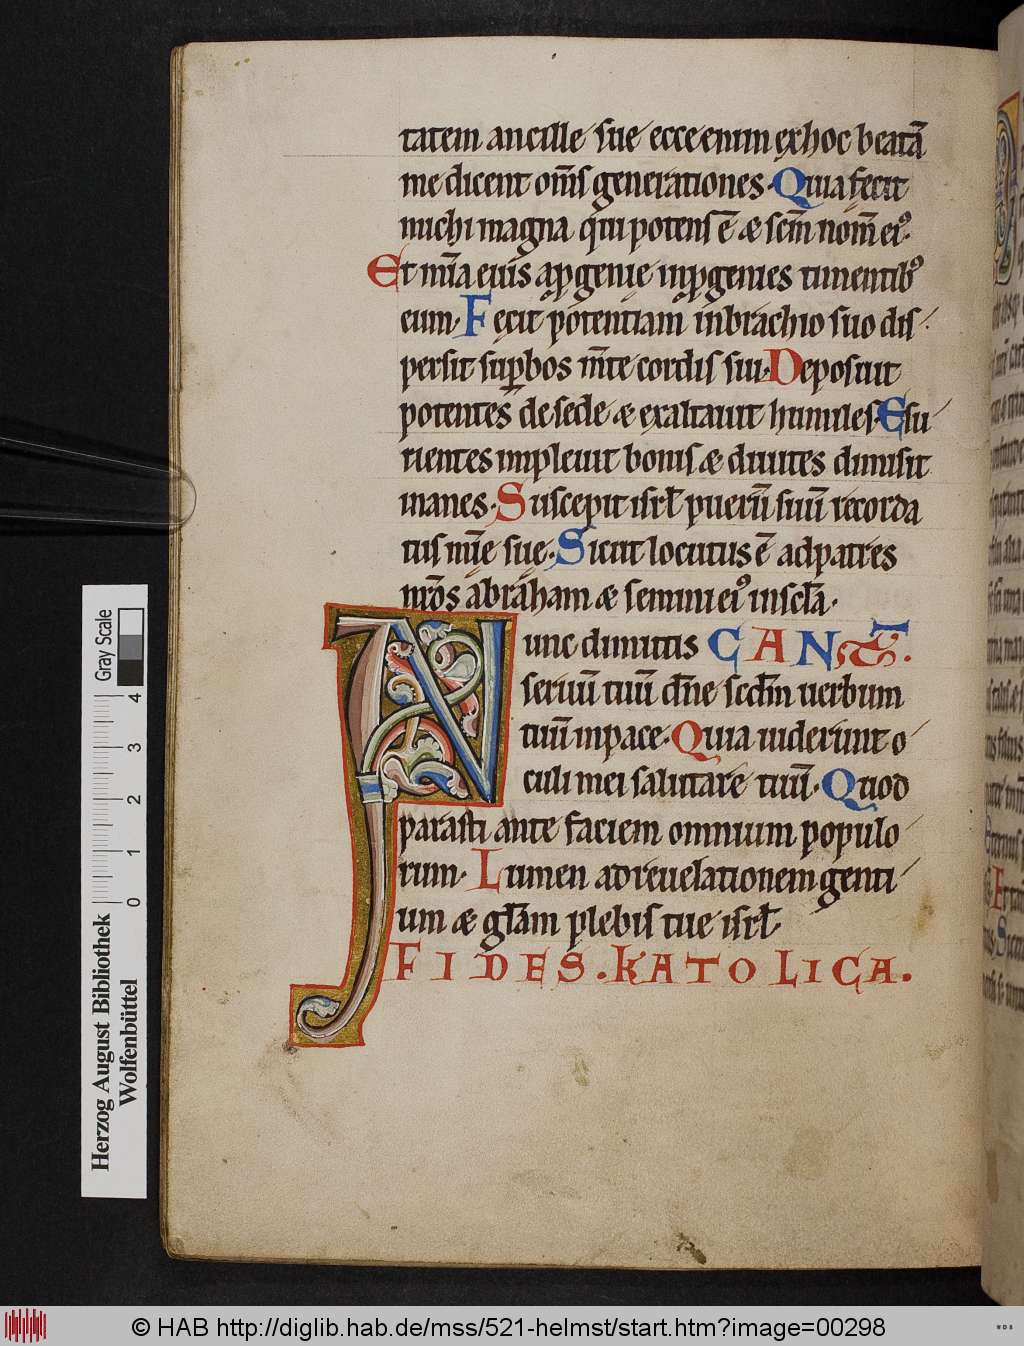 tatem ancille sue ecce enim ex hoc beatā
me dicent om̄s generationes. Quia fecit
michi magna qui potens ē & scm̄ nom̄ ei⁹.
Et mīa eius a ꝓgenie in ꝓgenies timentib⁹
eum. Fecit potentiam in brachio suo dis
persit suꝑbos m̄te cordis sui. Deposuit
potentes de sede & exaltauit humiles. Esu
rientes impleuit bonis & diuites dimisit
inanes. Suscepit isrl̄ puerū suū recorda
tus mīe sue. Sicut locutus ē ad patres
nr̄os abraham & semini ei⁹ in scl̄a.
Nunc dimittis CANT̄.
seruū tuū dn̄e scdm̄ uerbum
tuū in pace. Quia uiderunt o
culi mei salutare tuū. Quod
parasti ante faciem omnium populo
rum. Lumen ad reuelationem genti
um & gl̄am plebis tue isrl̄.
FIDES. KATOLICA.
Herzog August Bibliothek
Wolfenbüttel
Gray Scale
0 1 2 3 4
© HAB http://diglib.hab.de/mss/521-helmst/start.htm?image=00298